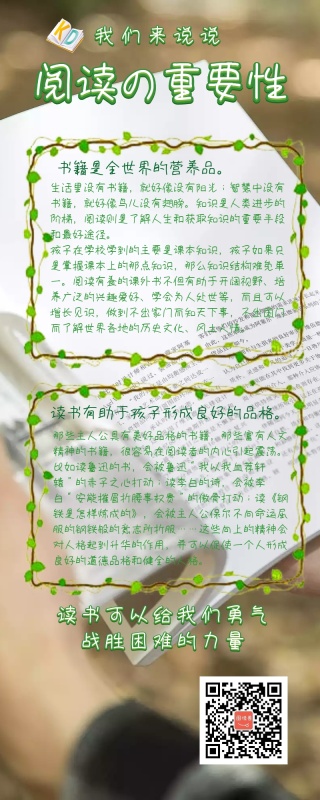 KD
我们来说说
阅读の重要性
书籍是全世界的营养品。
生活里没有书籍，就好像没有阳光；智慧中没有
书籍，就好像鸟儿没有翅膀。知识是人类进步的
阶梯，阅读则是了解人生和获取知识的重要手段
和最好途径。
孩子在学校学到的主要是课本知识，孩子如果只
是掌握课本上的那点知识，那么知识结构难免单
一。阅读有益的课外书不但有助于开阔视野、培
养广泛的兴趣爱好、学会为人处世等，而且可以
增长见识，做到不出家门而知天下事，不出国门
而了解世界各地的历史文化、风土人情。
读书有助于孩子形成良好的品格。
那些主人公具有美好品格的书籍，那些富有人文
精神的书籍，很容易在阅读者的内心引起震荡。
比如读鲁迅的书，会被鲁迅“我以我血荐轩
辕”的赤子之心打动；读李白的诗，会被李
白“安能摧眉折腰事权贵”的傲骨打动；读《钢
铁是怎样炼成的》，会被主人公保尔不向命运屈
服的钢铁般的意志所折服……这些向上的精神会
对人格起到升华的作用，并可以促使一个人形成
良好的道德品格和健全的人格。
读书可以给我们勇气
战胜困难的力量